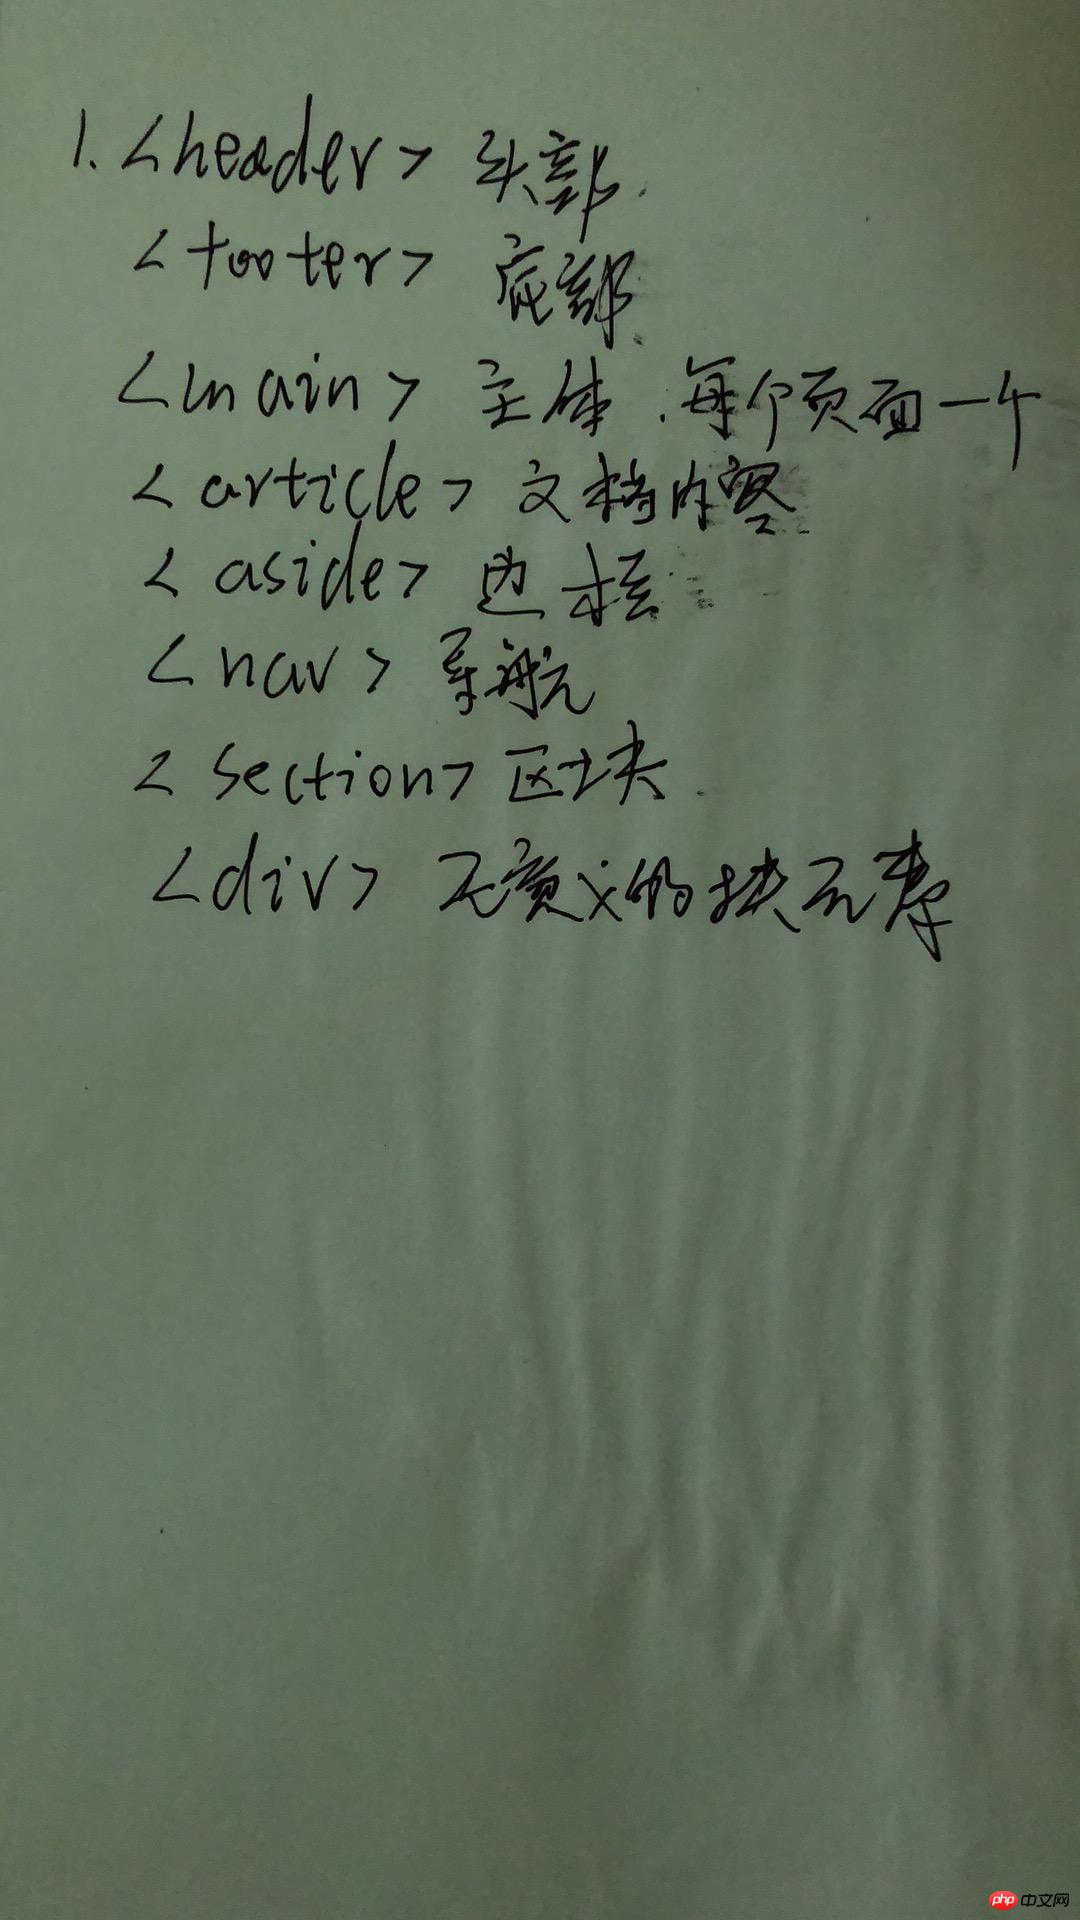 1. <header> 头部.
<footer> 底部.
<main> 主体.每个页面一个
<article> 文档内容
<aside> 边栏
<nav> 导航
<section> 区块.
<div> 无意义的块元素
php 中文网